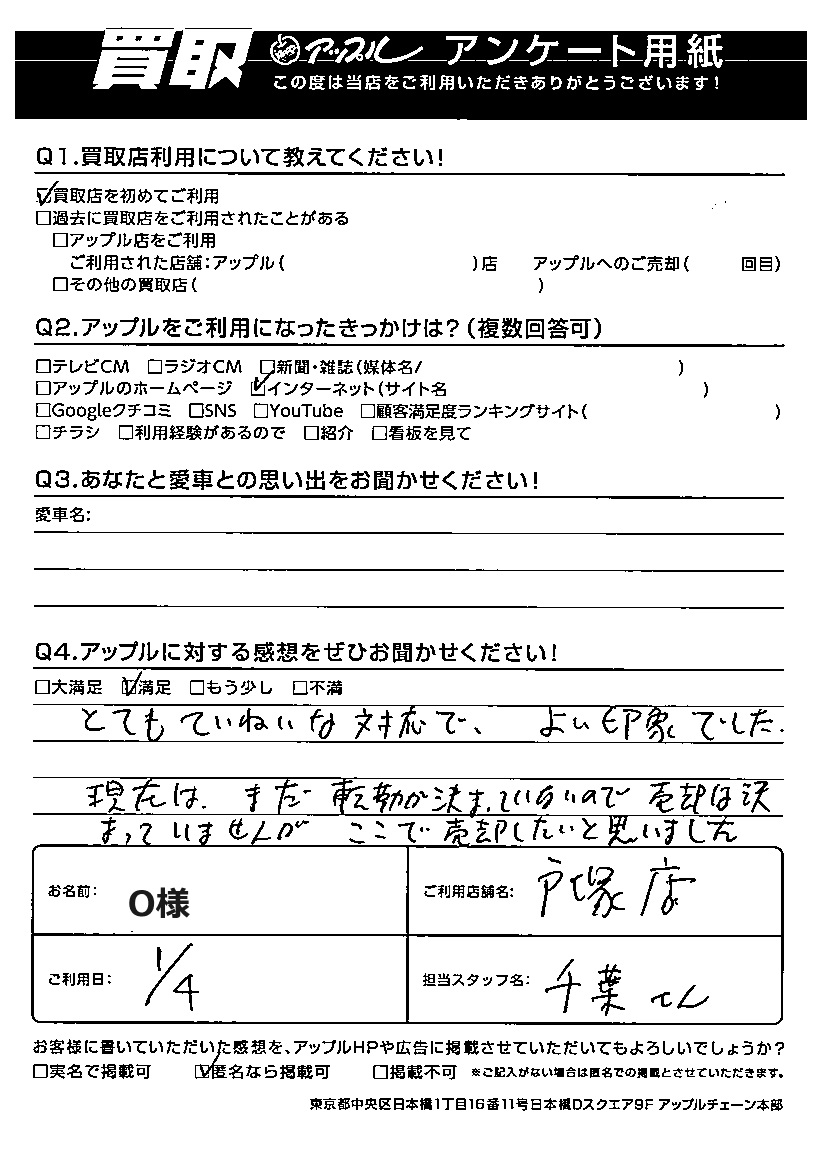 買取 アップル アンケート用紙
この度は当店をご利用いただきありがとうございます!
Q1.買取店利用について教えてください!
☑買取店を初めてご利用
□過去に買取店をご利用されたことがある
□アップル店をご利用
ご利用された店舗:アップル( )店 アップルへのご売却( 回目)
□その他の買取店( )
Q2.アップルをご利用になったきっかけは?(複数回答可)
□テレビCM □ラジオCM □新聞・雑誌(媒体名/ )
□アップルのホームページ ☑インターネット(サイト名 )
□Googleクチコミ □SNS □YouTube □顧客満足度ランキングサイト( )
□チラシ □利用経験があるので □紹介 □看板を見て
Q3.あなたと愛車との思い出をお聞かせください!
愛車名:
Q4.アップルに対する感想をぜひお聞かせください!
□大満足 ☑満足 □もう少し □不満
とてもていねいな対応で、 よい印象でした.
現在は、まだ転勤が決まっていないので売却は決
まっていませんが ここで売却したいと思いました
お名前: O様 ご利用店舗名: 戸塚店
ご利用日: 1/4 担当スタッフ名: 千葉さん
お客様に書いていただいた感想を、アップルHPや広告に掲載させていただいてもよろしいでしょうか?
□実名で掲載可 ☑匿名なら掲載可 □掲載不可 ※ご記入がない場合は匿名での掲載とさせていただきます。
東京都中央区日本橋1丁目16番11号日本橋Dスクエア9F アップルチェーン本部